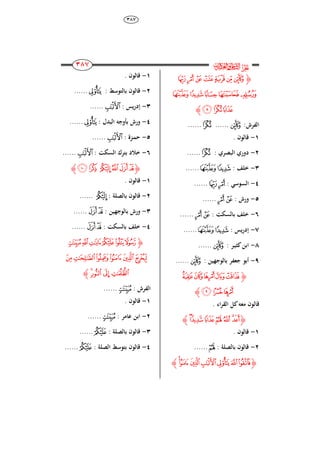 ٣٨٧
٣٨٧
١- قالون .
٢- قالون بالتوسط : يَٰٓأُوْلِي ......
٣- إدريس : ٱلۡأَلۡبَٰبِ ......
٤- ورش بأوجه البدل : يَٰٓأُوْلِي ......
٥- حمزة : ٱلۡأَلۡبَٰبِ ......
٦- خلاد بترك السكت : ٱلۡأَلۡبَٰبِ ......
﴿ قَدۡ أَنزَلَ ٱللَّهُ إِلَيۡكُمۡ ذِكۡرٗا ۝١٠ ﴾
١- قالون .
٢- قالون بالصلة : إِلَيۡكُمۡ ......
٣- ورش بالوجهين : قَدۡ أَنزَلَ ......
٤- خلف بالسكت : قَدۡ أَنزَلَ ......
﴿ رَّسُولٗا يَتۡلُواْ عَلَيۡكُمۡ ءَايَٰتِ ٱللَّهِ مُبَيِّنَٰتٖ
لِّيُخۡرِجَ ٱلَّذِينَ ءَامَنُواْ وَعَمِلُواْ ٱلصَّٰلِحَٰتِ مِنَ
ٱلظُّلُمَٰتِ إِلَى ٱلنُّورِ ﴾
الفرش : مُبَيِّنَٰتٖ ......
١- قالون .
٢- ابن عامر : مُبَيِّنَٰتٖ ......
٣- قالون بالصلة : عَلَيۡكُمۡ ......
٤- قالون بتوسط الصلة : عَلَيۡكُمۡ ......
﴿ وَكَأَيِّن مِّن قَرۡيَةٍ عَتَتۡ عَنۡ أَمۡرِ رَبِّهَا
وَرُسُلِهِۦ فَحَاسَبۡنَٰهَا حِسَابٗا شَدِيدٗا وَعَذَّبۡنَٰهَا
عَذَابٗا نُّكۡرٗا ۝٨ ﴾
الفرش: وَكَأَيِّن ...... نُّكۡرٗا ......
١- قالون .
٢- دوري البصري : نُّكۡرٗا ......
٣- خلف : شَدِيدٗا وَعَذَّبۡنَٰهَا ......
٤- السوسي : أَمۡرِ رَبِّهَا ......
٥- ورش : عَنۡ أَمۡرِ ......
٦- خلف بالسكت : عَنۡ أَمۡرِ ......
٧- إدريس : شَدِيدٗا وَعَذَّبۡنَٰهَا ......
٨- ابن كثير : وَكَأَيِّن ......
٩- أبو جعفر بالوجهين : وَكَأَيِّن ......
﴿ فَذَاقَتۡ وَبَالَ أَمۡرِهَا وَكَانَ عَٰقِبَةُ
أَمۡرِهَا خُسۡرًا ۝٩ ﴾
قالون معه كل القراء .
﴿ أَعَدَّ ٱللَّهُ لَهُمۡ عَذَابٗا شَدِيدٗاۖ ﴾
١- قالون .
٢- قالون بالصلة : لَهُمۡ ......
﴿ فَٱتَّقُواْ ٱللَّهَ يَٰٓأُوْلِي ٱلۡأَلۡبَٰبِ ٱلَّذِينَ ءَامَنُواْۚ ﴾